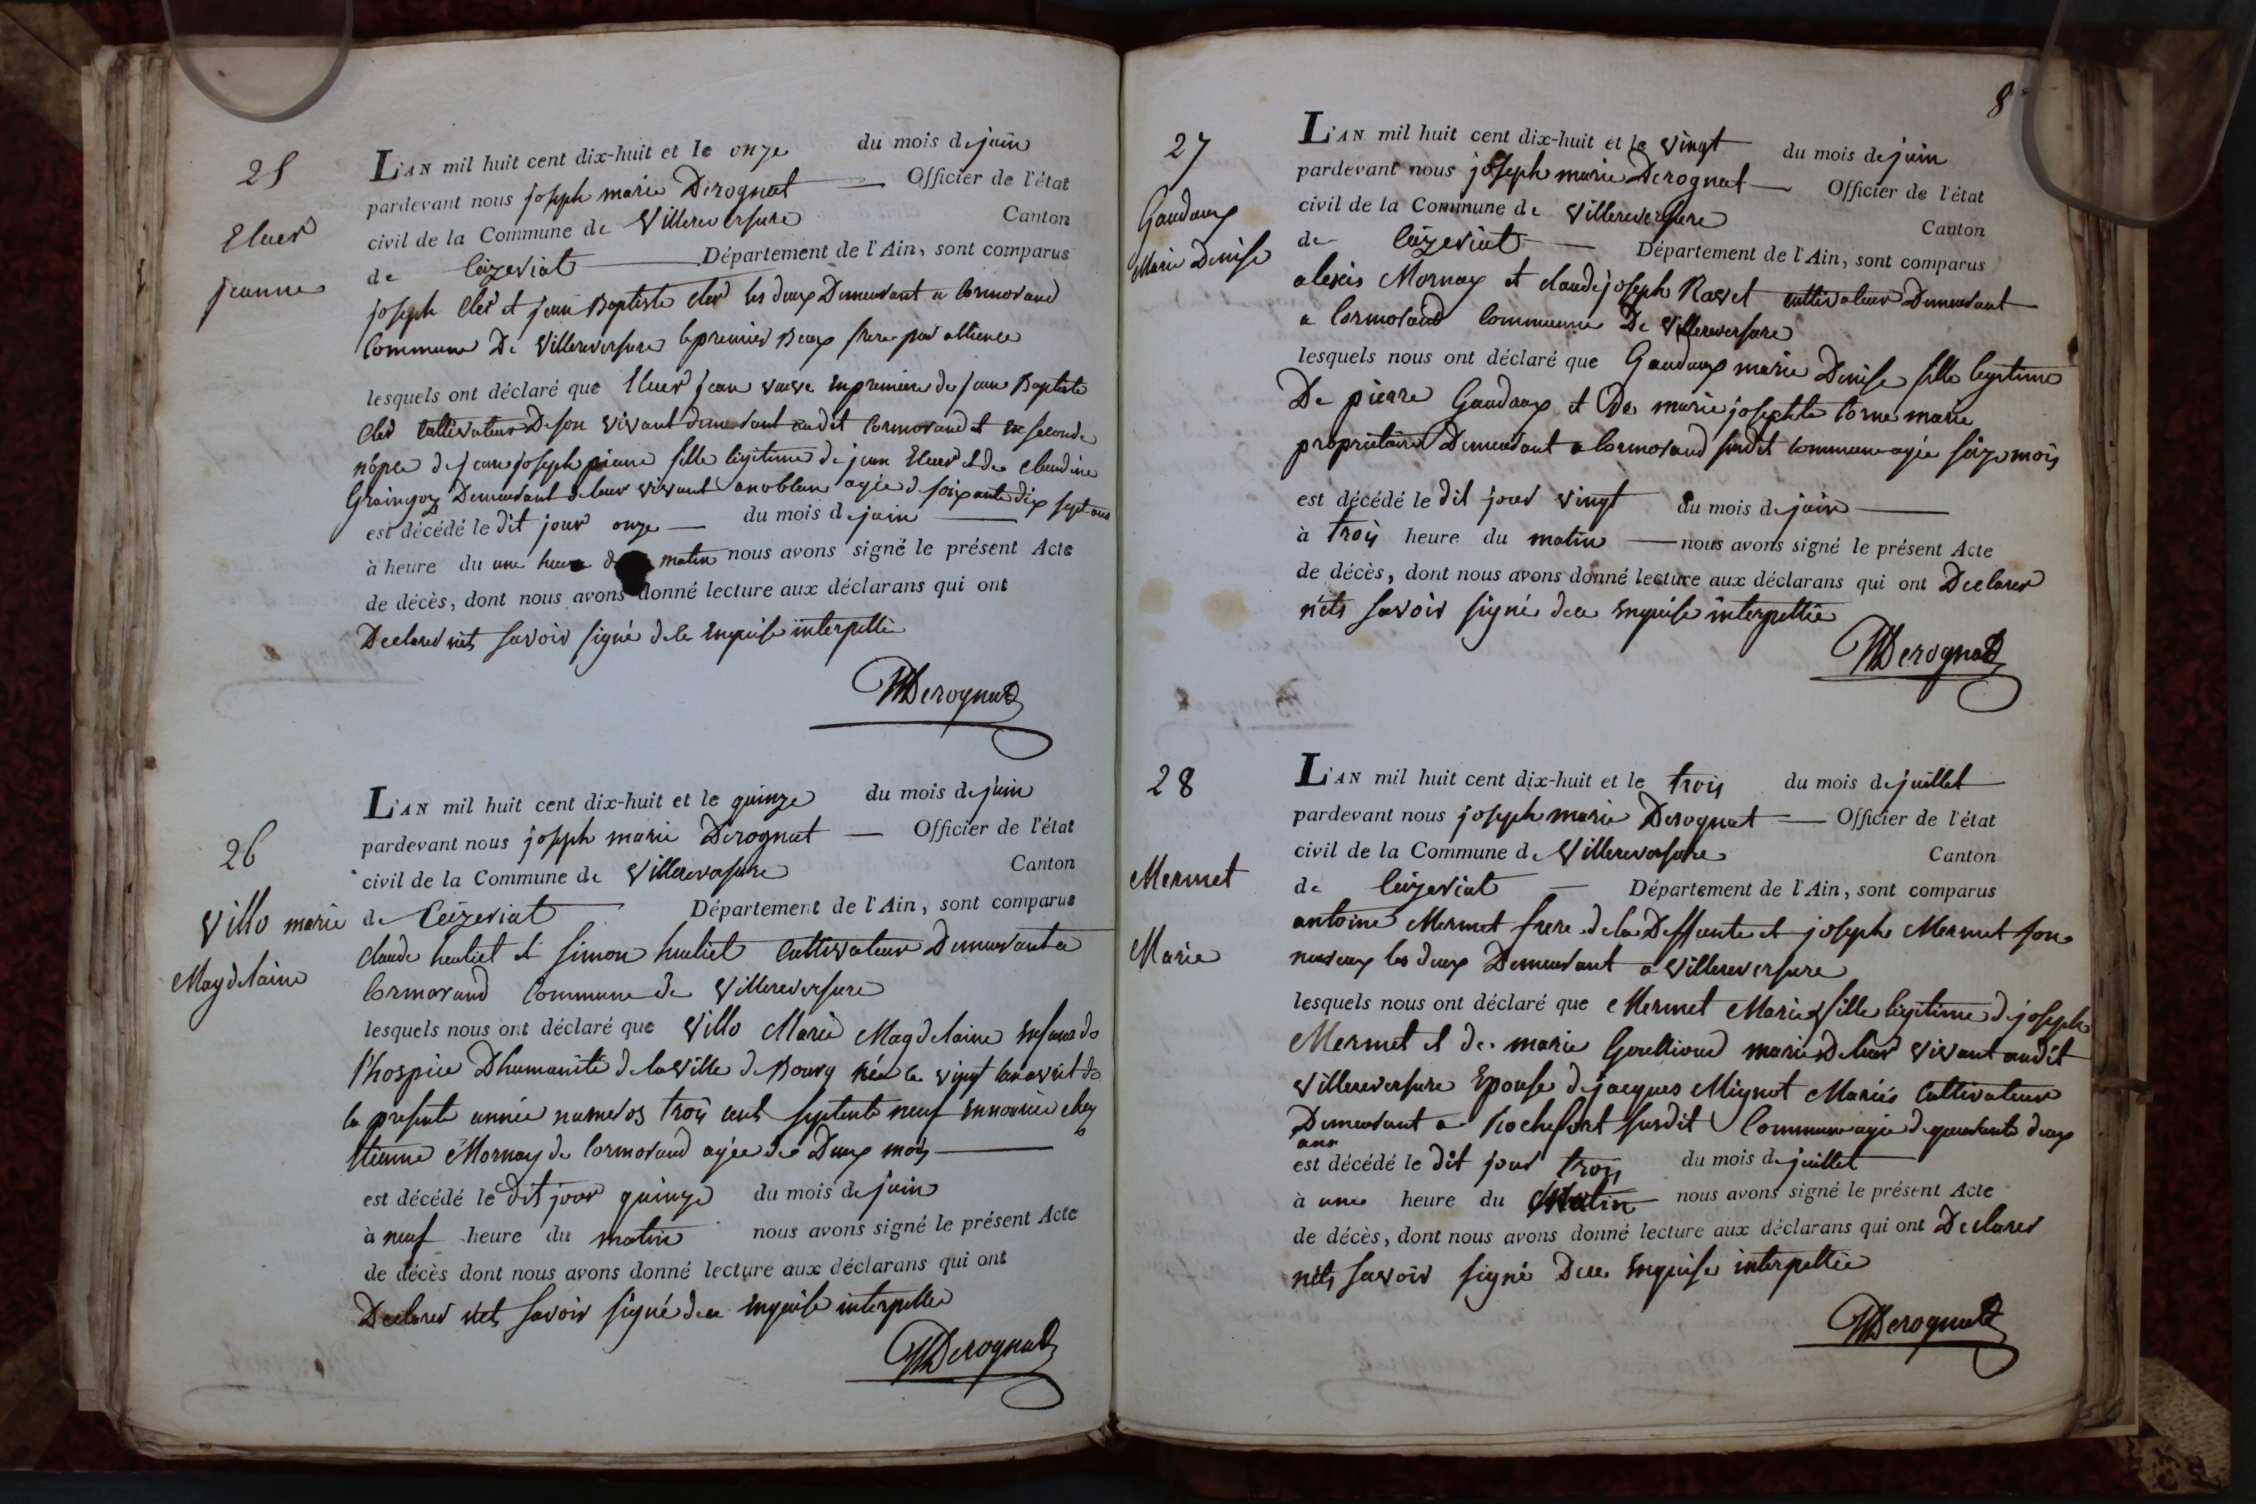 25
Eluer
jeanne
L'AN mil huit cent dix-huit et le onze du mois de juin
pardevant nous joseph marie Derognat Officier de l'état
civil de la Commune de Villereversure Canton
de Ceizeriat Département de l'Ain, sont comparus
joseph Cler et jean Baptiste cler les deux Demeurant a Cormorand
Commune De Villereversure le premier Beaux frere par allience
lesquels ont déclaré que Eluer jean vueve en premiere de jean Baptiste
Cler Cultivateur De son vivant demeurant audit Cormorand et en seconde
nopce de jean joseph pieure fille legitime de jean Eluer et de claudine
Demeurant de leur vivant anoblens agée de soixante dix sept ans
est décédé le dit jour onze du mois de juin
à heure du une heure matin nous avons signé le présent Acte
de décès, dont nous avons donné lecture aux déclarans qui ont
Declarer nets savoir signé de le enquise interpellé
Derognat
26
Villo marie
Magdelaine
L'AN mil huit cent dix-huit et le quinze du mois de juin
pardevant nous joseph marie Derognat Officier de l'état
civil de la Commune de Villereversure Canton
de Ceizeriat Département de l'Ain, sont comparus
claude huliet et Simon huliet Cultivateur Demeurant a
Cormorand Commune de Villereversure
lesquels nous ont déclaré que Villo Marie Magdelaine enfans de
l'hospice Dhumanité de la ville de Bourg née le vingt avril de
la presente année numeros trois cent septente neuf ennourice chez
Etienne Mornay de Cormorand agée de Deux mois
est décédé le dit jour quinze du mois de juin
à neuf heure du matin nous avons signé le présent Acte
de décès dont nous avons donné lecture aux déclarans qui ont
Declarer nets savoir signé dee enquise interpellé
Derognat
8
27
Gaudaux
Marie Denise
L'AN mil huit cent dix-huit et le vingt du mois de juin
pardevant nous joseph marie Derognat Officier de l'état
civil de la Commune de Villereversure Canton
de Ceizeriat Département de l'Ain, sont comparus
alexis Mornay et claude joseph Ravet cultivateur Demeurant
a Cormorand Commune De Villereversure
lesquels nous ont déclaré que Gaudaux marie Denise fille legitime
De pierre Gaudaux et De marie josephte Corne marie
proprietaire Demeurant a Cormorand susdit commune agée sieze mois
est décédé le dit jour vingt du mois de juin
à trois heure du matin nous avons signé le présent Acte
de décès, dont nous avons donné lecture aux déclarans qui ont Declarer
nets savoir signé dee enquise interpellée
Derognat
28
Mermet
Marie
L'AN mil huit cent dix-huit et le trois du mois de juillet
pardevant nous joseph marie Derognat Officier de l'état
civil de la Commune de Villereversure Canton
de Ceizeriat Département de l'Ain, sont comparus
antoine Mermet frere de la Deffunte et joseph Mermet son
neveux les deux Demeurant a Villereversure
lesquels nous ont déclaré que Mermet Marie fille legitime de joseph
Mermet et de marie Goullioud mariés De leur vivant audit
Villereversure Epouse de jacques Mignot Mariés Cultivateur
Demeurant a Rochefort susdit Commune agée de quarante deux
ans
est décédé le dit jour trois du mois de juillet
à une heure du Matin nous avons signé le présent Acte
de décès, dont nous avons donné lecture aux déclarans qui ont Declarer
nets savoir signé Dee enquise interpellée
Derognat